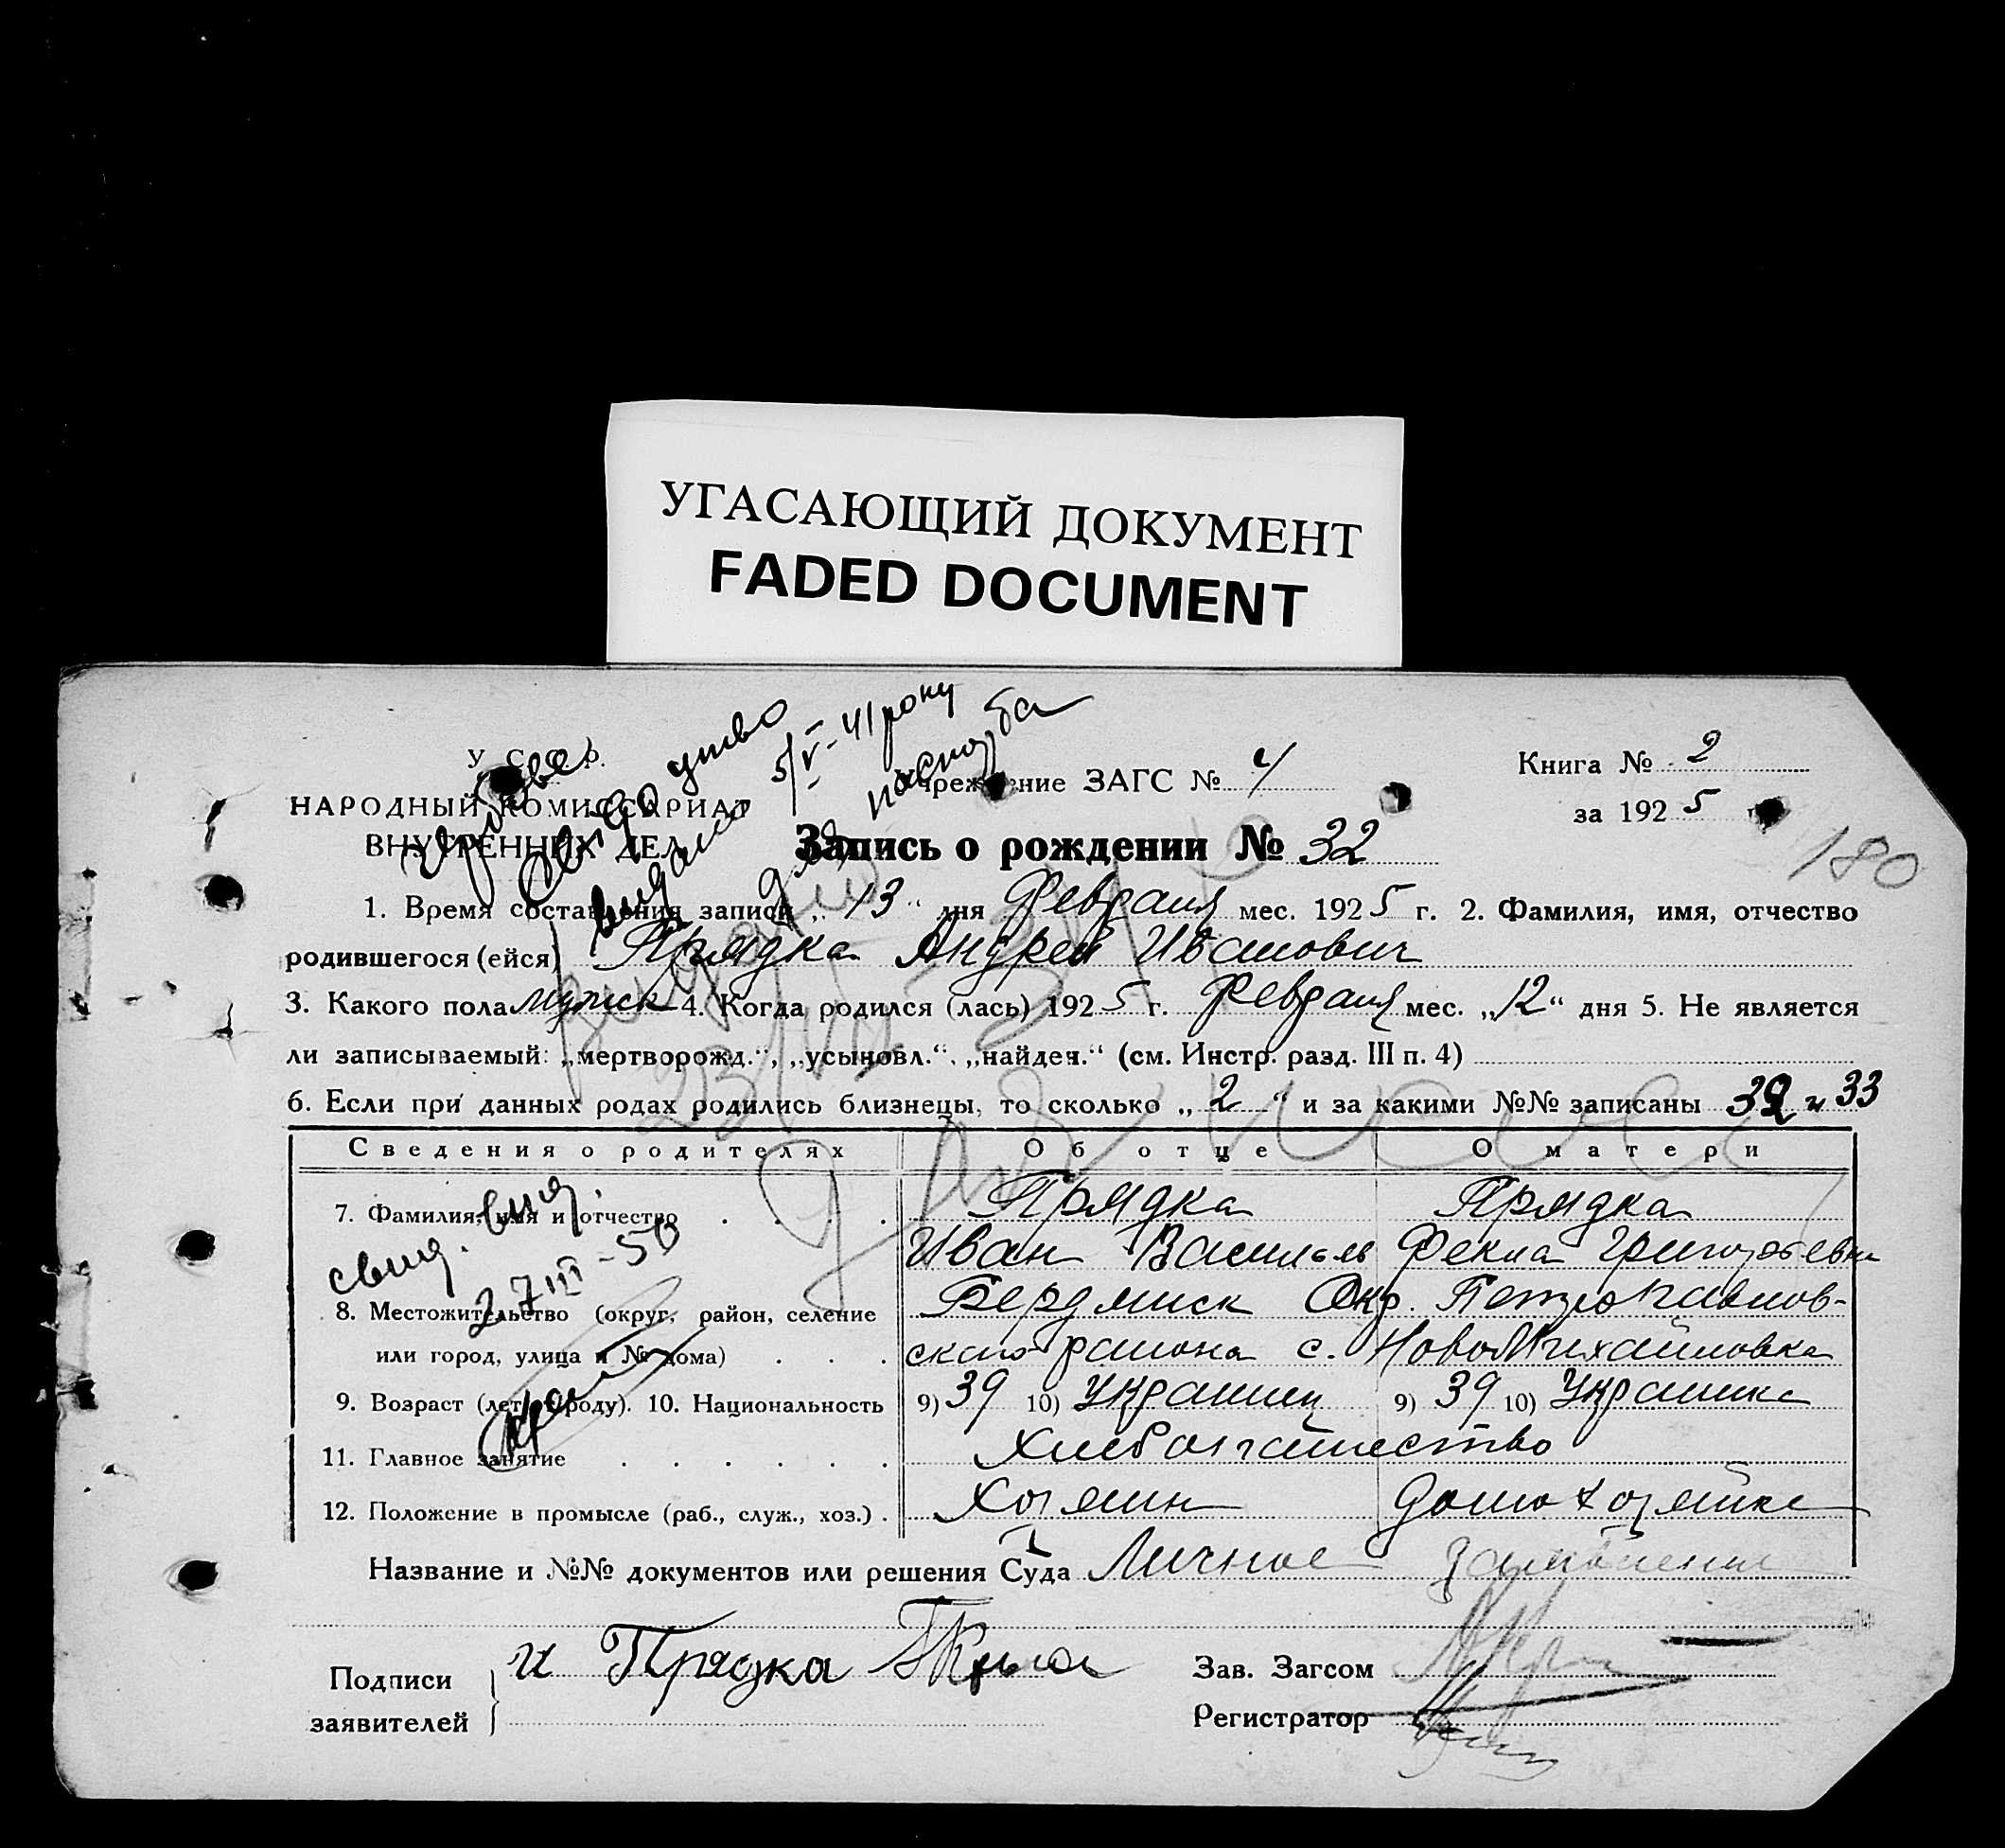 УГАСАЮЩИЙ ДОКУМЕНТ
FADED DOCUMENT
У. С. С. Р.
НАРОДНЫЙ КОМИССАРИАТ
ВНУТРЕННИХ ДЕЛ
выдано 5/V-41 року
для паспорта
Учреждение ЗАГС № 4
Книга № 2
за 1925 г.
180
Запись о рождении № 32
1. Время составления записи „13“ дня Февраля мес. 1925 г. 2. Фамилия, имя, отчество
родившегося (ейся) Прядка Андрей Иванович
3. Какого пола мужск 4. Когда родился (лась) 1925 г. Февраля мес. „12“ дня 5. Не является
ли записываемый: „мертворожд.“, „усыновл.“, „найден.“ (см. Инстр. разд. III п. 4)
6. Если при данных родах родились близнецы, то сколько „2“ и за какими №№ записаны 32 и 33
Сведения о родителях Об отце О матери
7. Фамилия, имя и отчество Прядка Прядка
Иван Васильев Фекла Григорьевна
свид. выд.
27 III-50
8. Местожительство (округ, район, селение Бердянск Окр. Петропавлов-
или город, улица и № дома) ского района с. НовоМихайловка
9. Возраст (лет от роду). 10. Национальность 9) 39 10) Украинец 9) 39 10) Украинка
11. Главное занятие Хлебопашество
12. Положение в промысле (раб., служ., хоз.) Хозяин домохозяйка
Название и №№ документов или решения Суда Личное заявление
Подписи
заявителей
и Прядка
Зав. Загсом
Регистратор